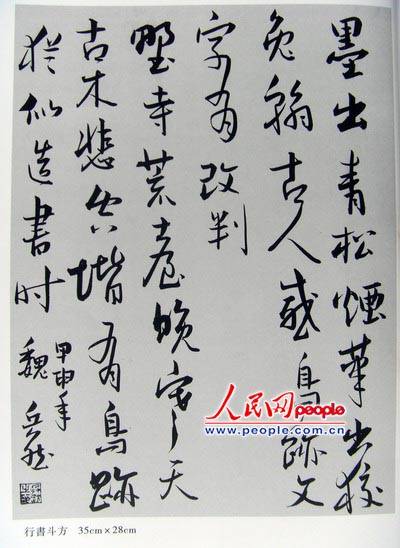 墨出青松煙筆出狡
兔翰古人感鳥跡文
字有改判
野寺荒臺晚寒天
古木悲空階有鳥跡
猶似造書时
甲申年
魏
人民网people
www.people.com.cn
行書斗方 35cm×28cm